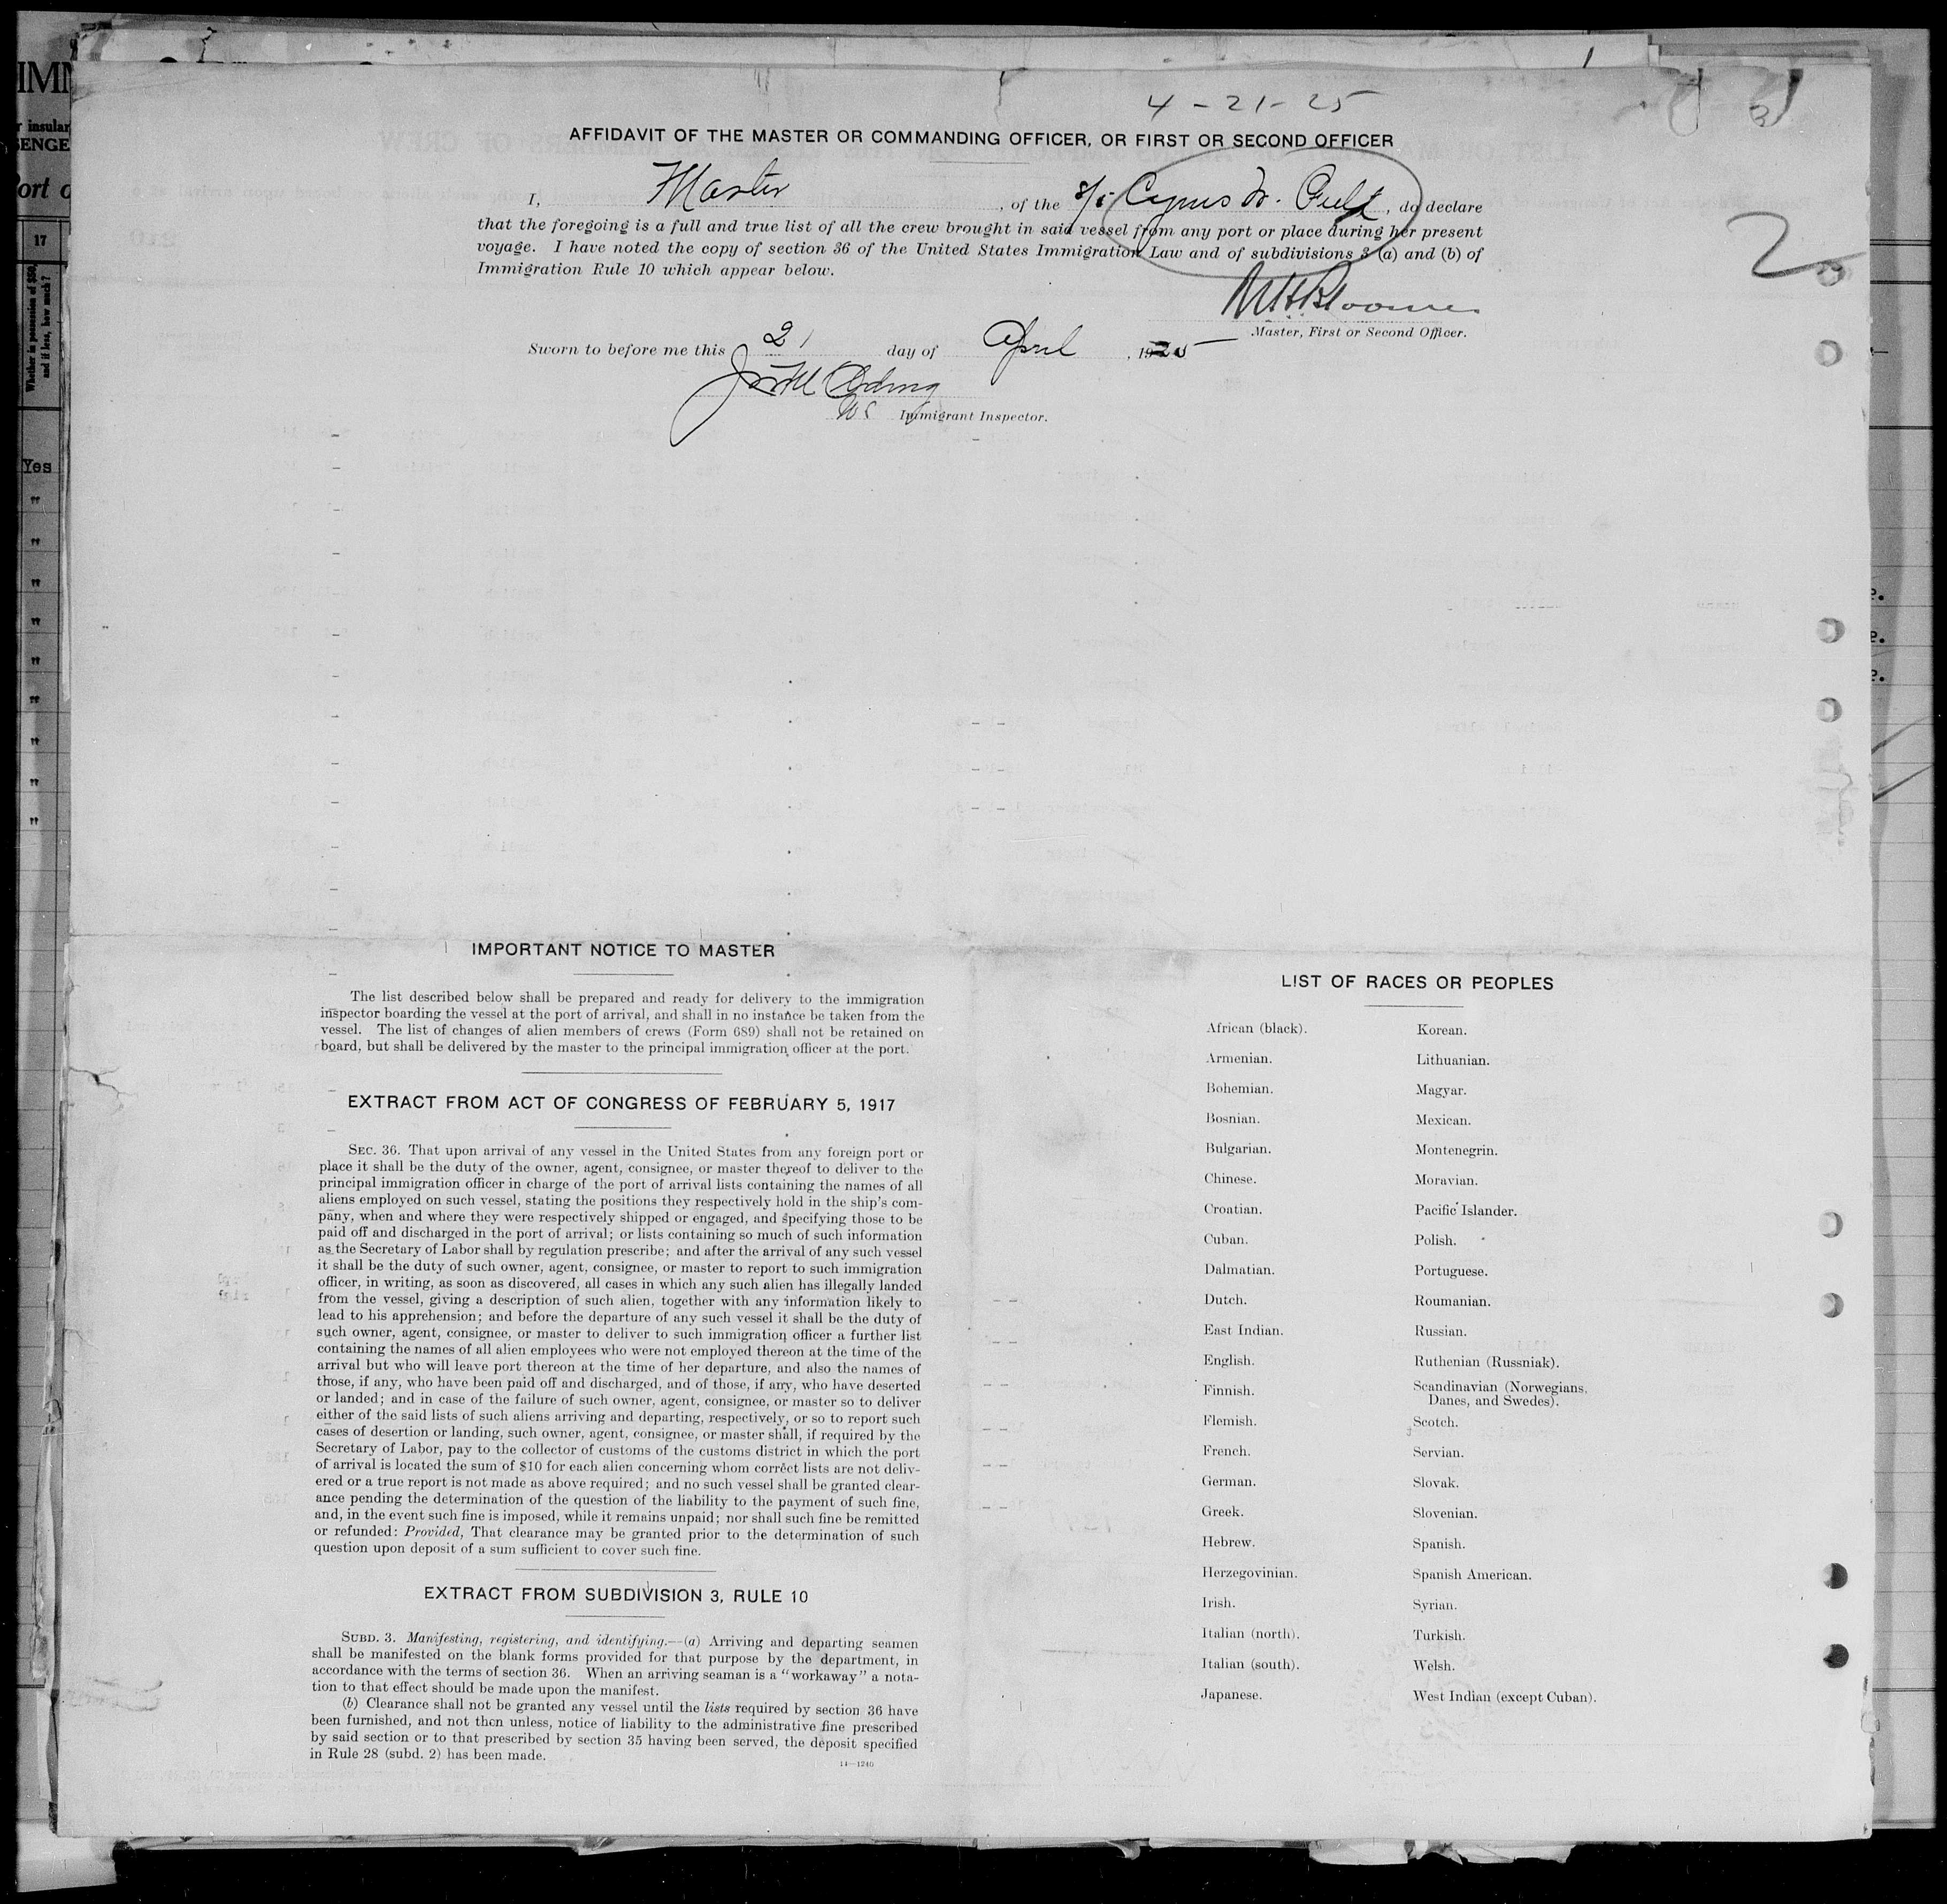 4-21-25
3
AFFIDAVIT OF THE MASTER OR COMMANDING OFFICER, OR FIRST OR SECOND OFFICER
I, Master, of the S/S Cyrus W. Field, do declare
that the foregoing is a full and true list of all the crew brought in said vessel from any port or place during her present
voyage. I have noted the copy of section 36 of the United States Immigration Law and of subdivisions 3 (a) and (b) of
Immigration Rule 10 which appear below.
2
Master, First or Second Officer.
Sworn to before me this 21 day of April, 1925
Immigrant Inspector.
IMM
r insular
SENGE
ort o
17
Whether in possession of $50,
and if less, how much?
Yes
"
"
"
"
"
"
"
"
"
IMPORTANT NOTICE TO MASTER
The list described below shall be prepared and ready for delivery to the immigration
inspector boarding the vessel at the port of arrival, and shall in no instance be taken from the
vessel. The list of changes of alien members of crews (Form 689) shall not be retained on
board, but shall be delivered by the master to the principal immigration officer at the port.
EXTRACT FROM ACT OF CONGRESS OF FEBRUARY 5, 1917
SEC. 36. That upon arrival of any vessel in the United States from any foreign port or
place it shall be the duty of the owner, agent, consignee, or master thereof to deliver to the
principal immigration officer in charge of the port of arrival lists containing the names of all
aliens employed on such vessel, stating the positions they respectively hold in the ship's com-
pany, when and where they were respectively shipped or engaged, and specifying those to be
paid off and discharged in the port of arrival; or lists containing so much of such information
as the Secretary of Labor shall by regulation prescribe; and after the arrival of any such vessel
it shall be the duty of such owner, agent, consignee, or master to report to such immigration
officer, in writing, as soon as discovered, all cases in which any such alien has illegally landed
from the vessel, giving a description of such alien, together with any information likely to
lead to his apprehension; and before the departure of any such vessel it shall be the duty of
such owner, agent, consignee, or master to deliver to such immigration officer a further list
containing the names of all alien employees who were not employed thereon at the time of the
arrival but who will leave port thereon at the time of her departure, and also the names of
those, if any, who have been paid off and discharged, and of those, if any, who have deserted
or landed; and in case of the failure of such owner, agent, consignee, or master so to deliver
either of the said lists of such aliens arriving and departing, respectively, or so to report such
cases of desertion or landing, such owner, agent, consignee, or master shall, if required by the
Secretary of Labor, pay to the collector of customs of the customs district in which the port
of arrival is located the sum of $10 for each alien concerning whom correct lists are not deliv-
ered or a true report is not made as above required; and no such vessel shall be granted clear-
ance pending the determination of the question of the liability to the payment of such fine,
and, in the event such fine is imposed, while it remains unpaid; nor shall such fine be remitted
or refunded: Provided, That clearance may be granted prior to the determination of such
question upon deposit of a sum sufficient to cover such fine.
EXTRACT FROM SUBDIVISION 3, RULE 10
SUBD. 3. Manifesting, registering, and identifying.—(a) Arriving and departing seamen
shall be manifested on the blank forms provided for that purpose by the department, in
accordance with the terms of section 36. When an arriving seaman is a "workaway" a nota-
tion to that effect should be made upon the manifest.
(b) Clearance shall not be granted any vessel until the lists required by section 36 have
been furnished, and not then unless, notice of liability to the administrative fine prescribed
by said section or to that prescribed by section 35 having been served, the deposit specified
in Rule 28 (subd. 2) has been made.
14—1240
LIST OF RACES OR PEOPLES
African (black). Korean.
Armenian. Lithuanian.
Bohemian. Magyar.
Bosnian. Mexican.
Bulgarian. Montenegrin.
Chinese. Moravian.
Croatian. Pacific Islander.
Cuban. Polish.
Dalmatian. Portuguese.
Dutch. Roumanian.
East Indian. Russian.
English. Ruthenian (Russniak).
Finnish. Scandinavian (Norwegians,
Danes, and Swedes).
Flemish. Scotch.
French. Servian.
German. Slovak.
Greek. Slovenian.
Hebrew. Spanish.
Herzegovinian. Spanish American.
Irish. Syrian.
Italian (north). Turkish.
Italian (south). Welsh.
Japanese. West Indian (except Cuban).